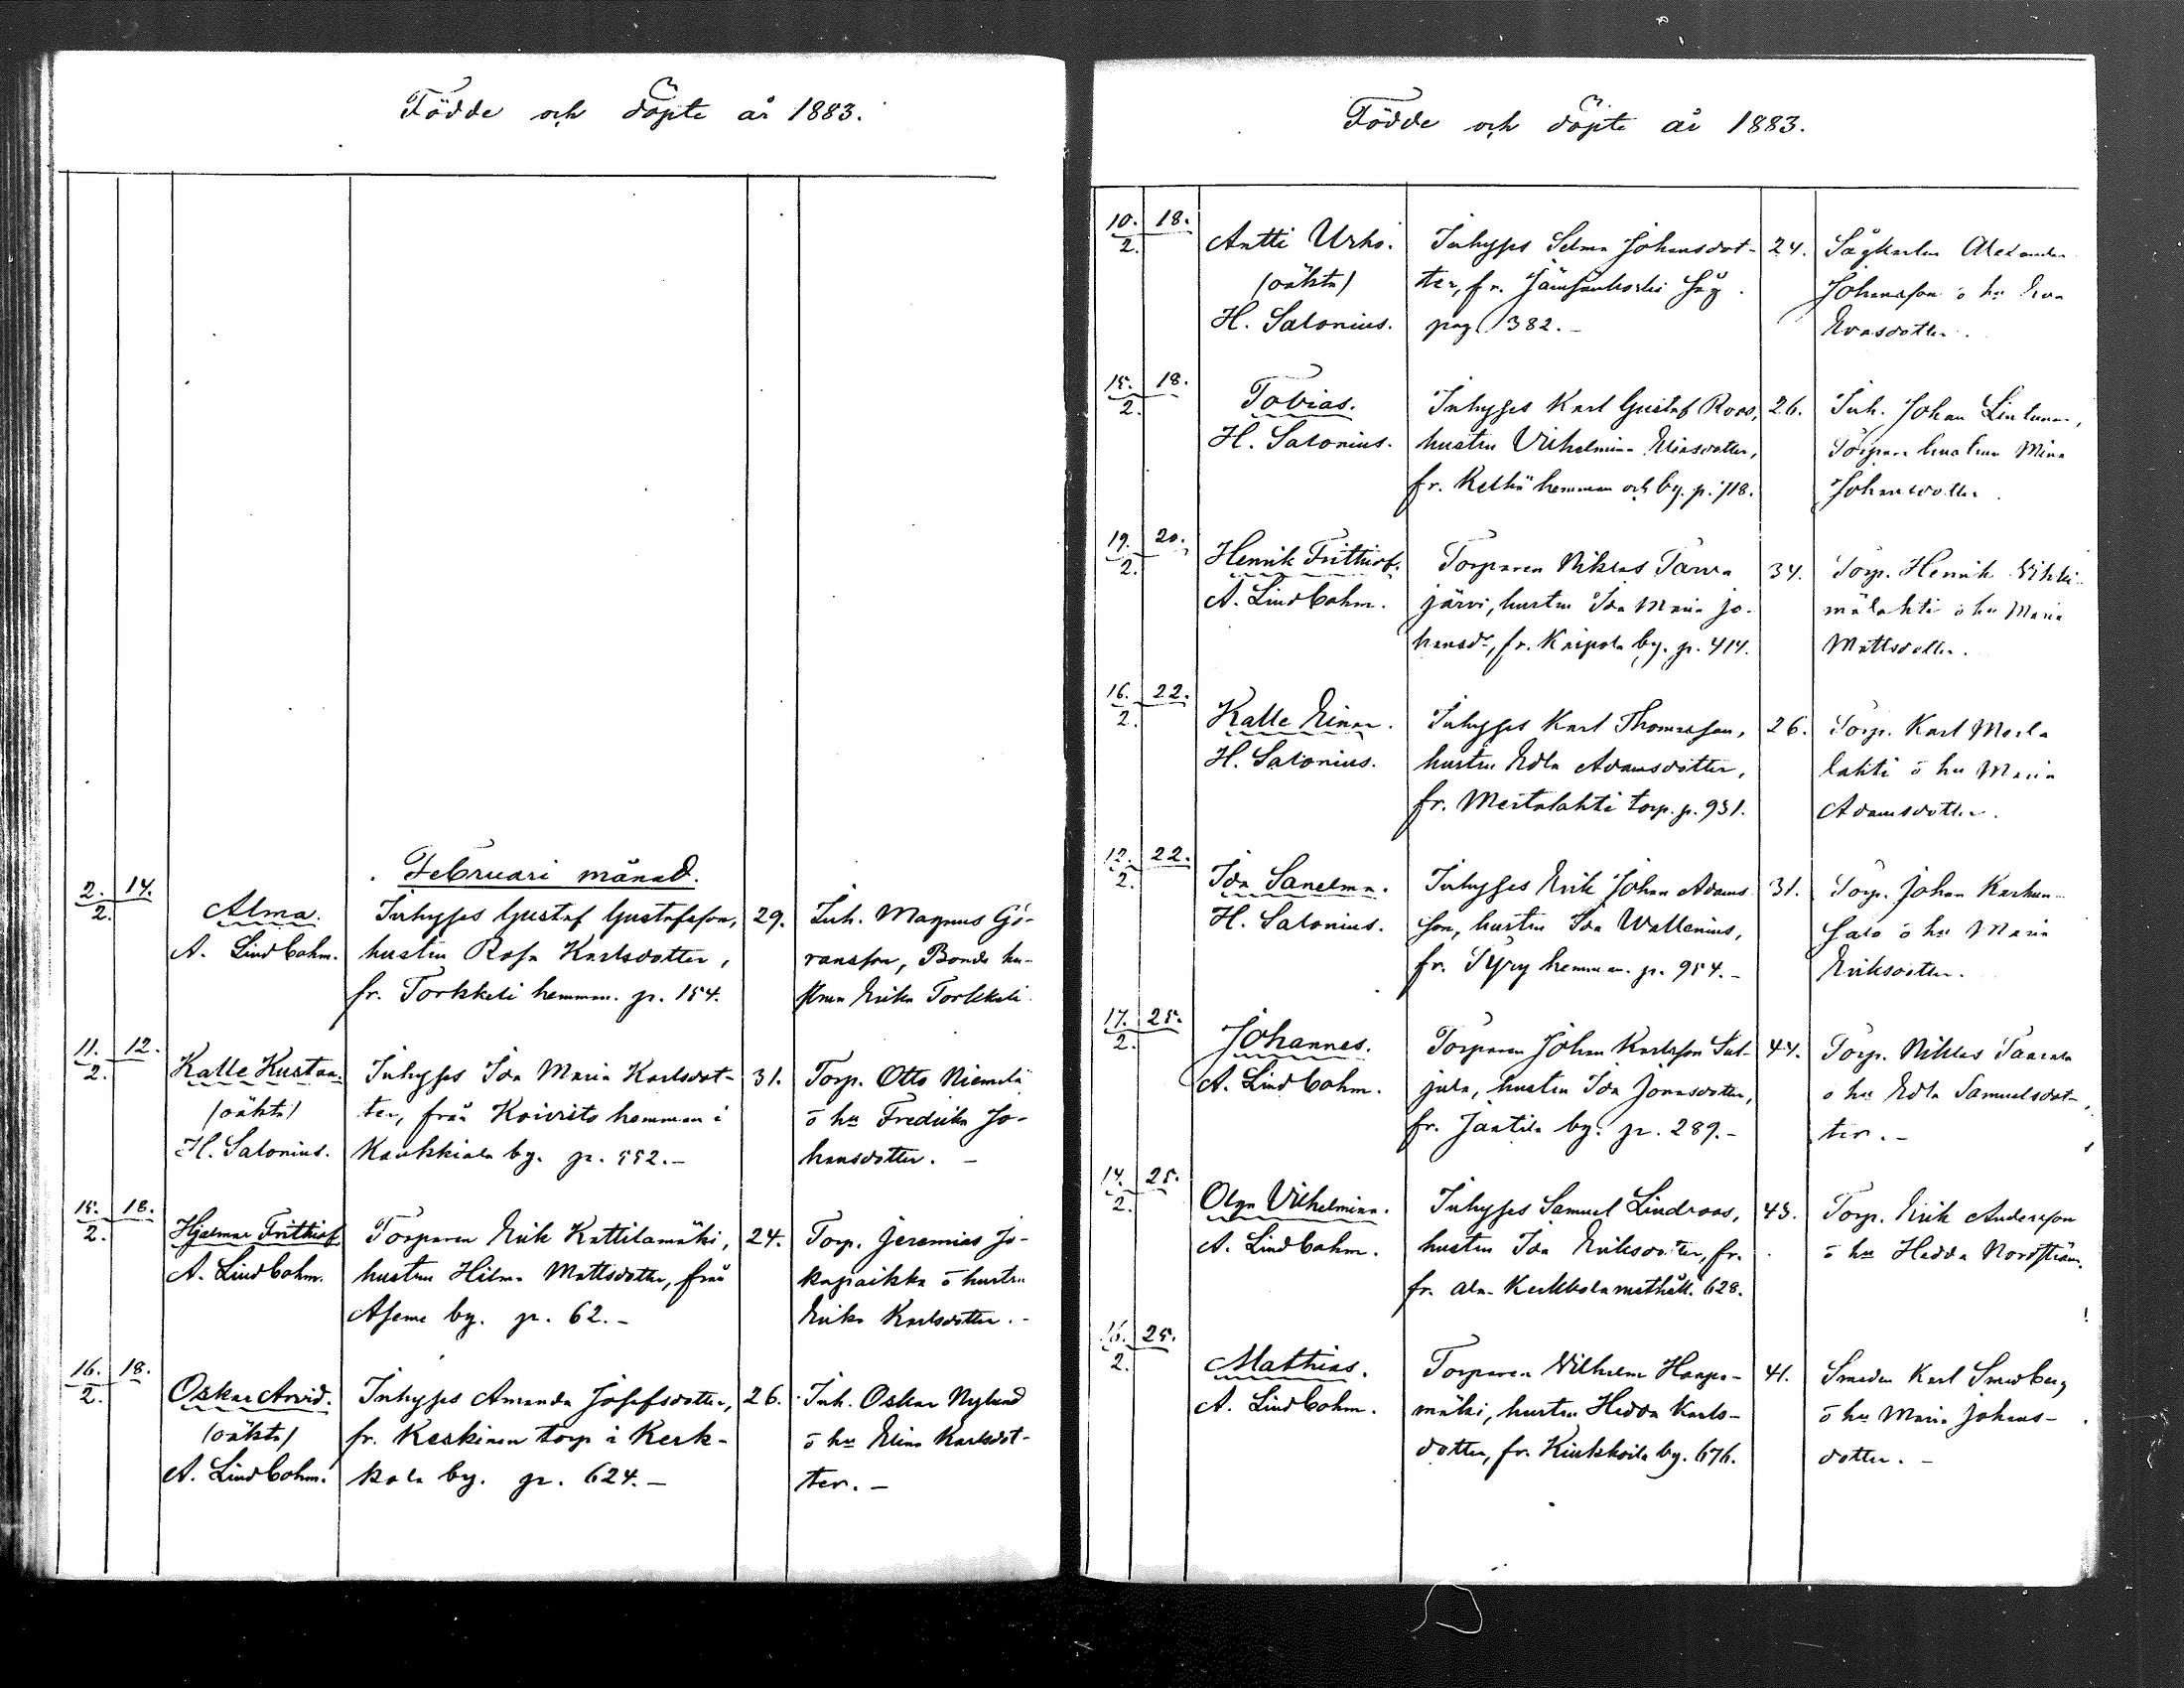 Födde och döpte år 1883.
Februari månad.
2. 14.
2.
Alma.
A. Lindbohm.
Inhyses Gustaf Gustafsson,
hustru Rosa Karlsdotter,
fr. Torkkeli hemman. p. 154.
29.
Inh. Magnus Gö-
ransson, Bonde hu-
strun Erika Torkkeli
11. 12.
2.
Kalle Kustaa.
(oäkta)
H. Salonius.
Inhyses Ida Maria Karlsdot-
ter, från Koivisto hemman i
Kaukkiala by. p. 552.-
31.
Torp. Otto Niemelä
o hu Fredrika Jo-
hansdotter. -
15. 18.
2.
Hjalmar Frithiof
A. Lindbohm.
Torparen Erik Kattilamäki,
hustru Hilma Mattsdotter, från
Aseme by. p. 62.-
24.
Torp. Jeremias Jo-
kapaikka o hustru
Erika Karlsdotter.-
16. 18.
2.
Oskar Arvid.
(oäkta)
A. Lindbohm.
Inhyses Amanda Josefsdotter,
fr. Keskinen torp i Kerk-
kola by. p. 624.-
26.
Inh. Oskar Nylund
o hu Elina Karlsdot-
ter.-
Födde och döpte år 1883.
10. 18.
2.
Antti Urho.
(oäkta)
H. Salonius.
Inhyses Selma Johansdot-
ter, fr. Jämsänkoski såg.
pag. 382.-
24.
Sågkarlen Alexander
Johansson o hu Eva
Evasdotter.
15. 18.
2.
Tobias.
H. Salonius.
Inhyses Karl Gustaf Roos,
hustru Vilhelmina Eliasdotter,
fr. hemman och by. p. 718.
26.
Inh. Johan
Torpare hustrun Mina
Johansdotter
19. 20.
2.
Henrik Frithiof.
A. Lindbohm.
Torparen Niklas Tarva
järvi, hustru Ida Maria Jo-
hansdr, fr. Kaipola by. p. 414.
34.
Torp. Henrik
mälahti o hu Maria
Mattsdotter.
16. 22.
2.
Kalle Einar.
H. Salonius.
Inhyses Karl Thomasson,
hustru Edla Adamsdotter,
fr. Mertalahti torp. p. 931.
26.
Torp. Karl Merta
lahti o hu Maria
Adamsdotter.
12. 22.
2.
Ida Sanelma.
H. Salonius.
Inhyses Erik Johan Adams
son, hustru Ida Wallenius,
fr. Tyry hemman. p. 954.-
31.
Torp. Johan Karhun-
salo o hu Maria
Eriksdotter.
17. 25.
2.
Johannes.
A. Lindbohm.
Torparen Johan Karlsson Sul-
jula, hustru Ida Jonasdotter,
fr. Jaatila by. p. 289.-
44.
Torp. Niklas Taavala
o hu Edla Samuelsdot-
ter.-
14. 25.
2.
Olga Vilhelmina.
A. Lindbohm.
Inhyses Samuel Lindroos,
hustru Ida Eriksdotter, fr.
fr. Ala-Kerkkola mathåll. 628.
43.
Torp. Erik Andersson
o hu Hedda Nordström.
16. 25.
2.
Mathias.
A. Lindbohm.
Torparen Vilhelm Haapa-
mäki, hustru Hedda Karls-
dotter, fr. Kiukkoila by. 676.
41.
Smeden Karl Smedberg
o hu Maria Johans-
dotter.-